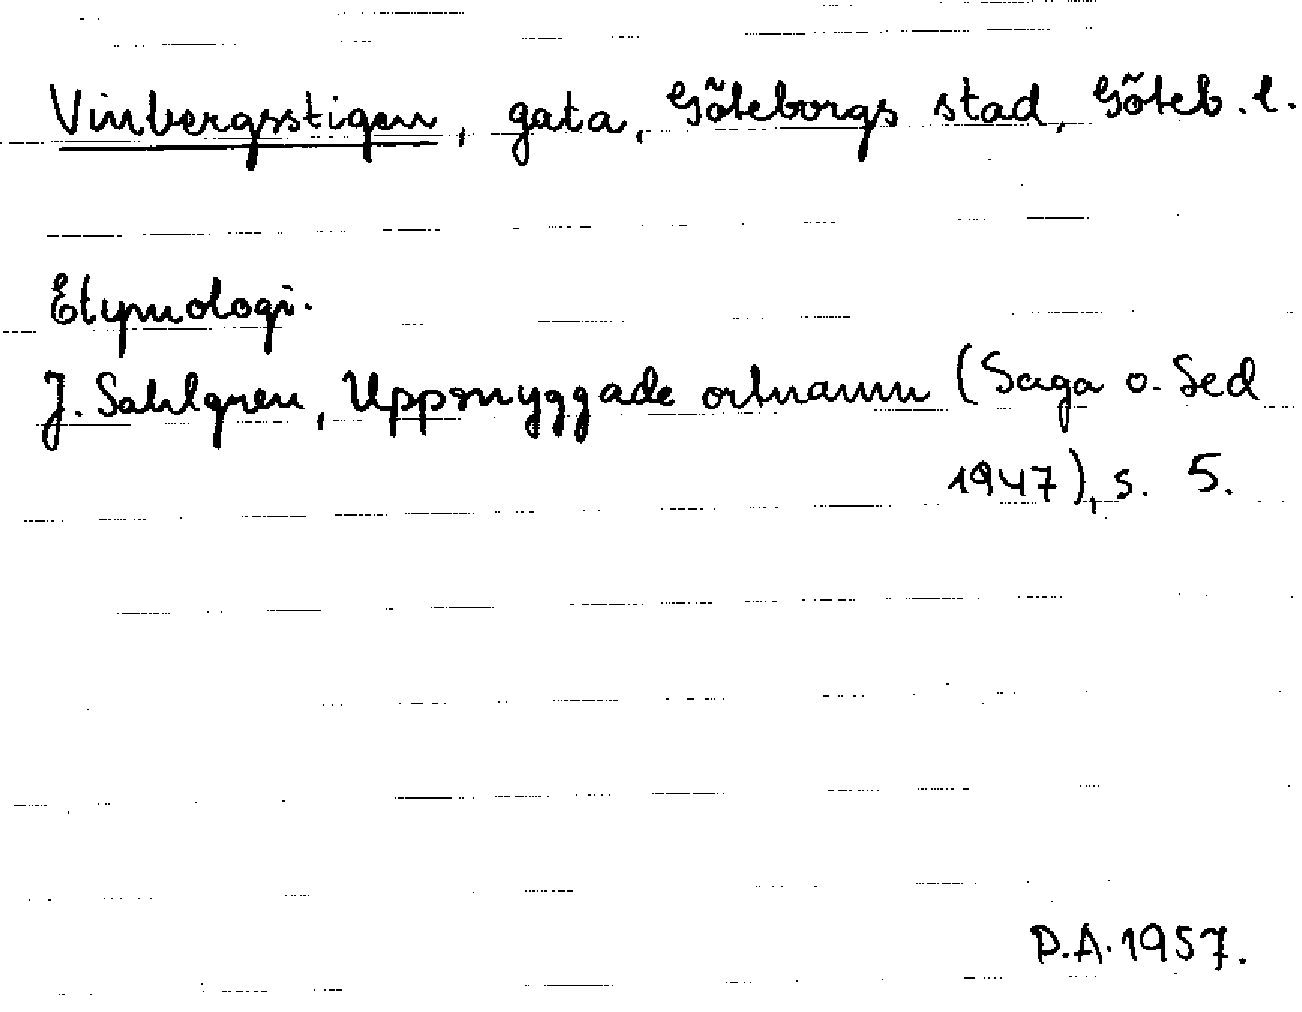 Vinbergsstigen, gata, Göteborgs stad, Göteb. l.
Etymologi.
J. Sahlgren, Uppsnyggade ortnamn (Saga o. Sed
1947), s. 5.
D.A. 1957.